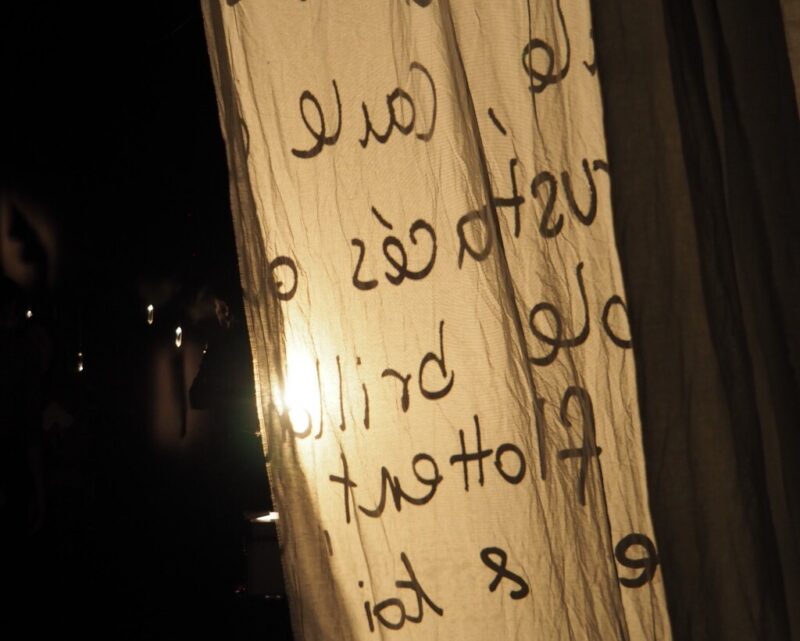 le
rustacés o
ole brill
flottent
e & toi